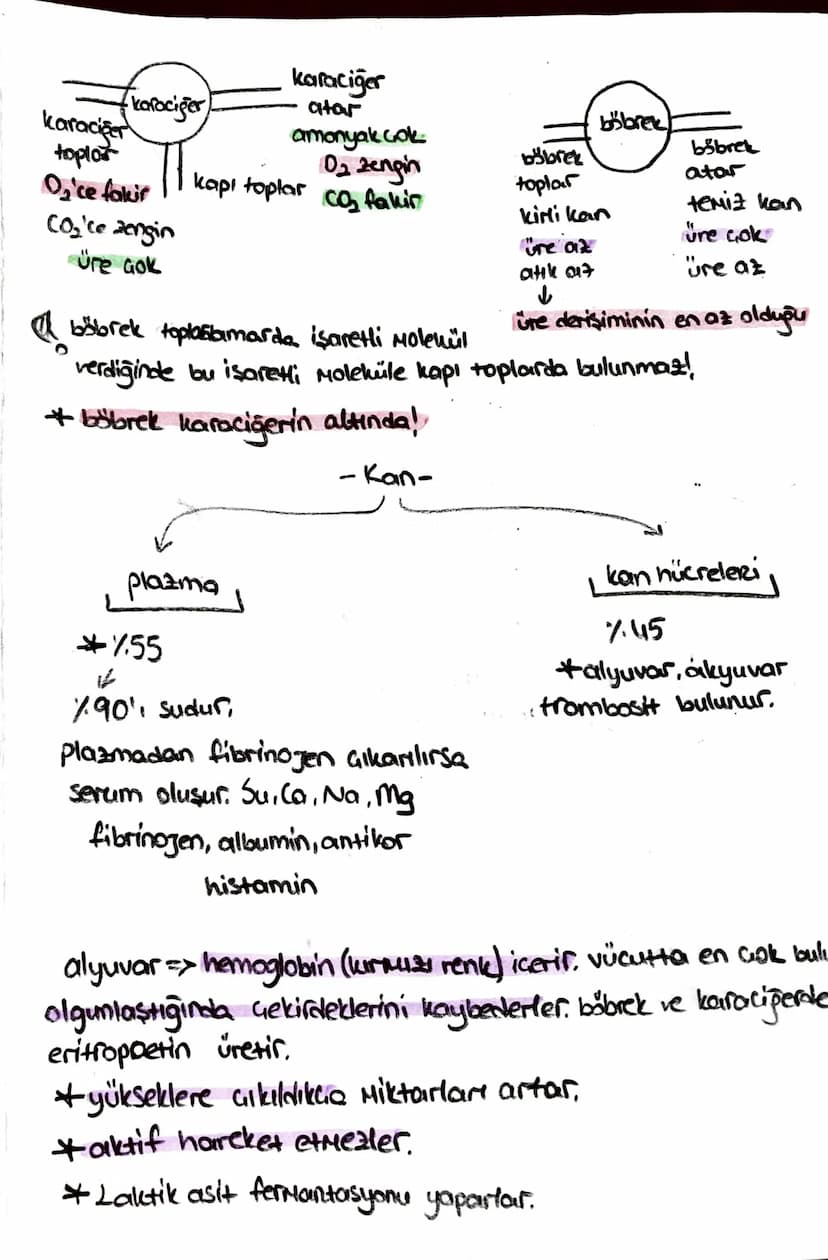 karaciğer
karaciğer
toplar
O₂'ce fakir
CO₂'ce zengin
üre çok
kapı toplar
karaciğer
atar
amonyak çok
O₂ zengin
CO₂ fakir
böbrek
böbrek
toplar
kirli kan
üre az
atık az
↓
üre derişiminin en az olduğu
böbrek
atar
temiz kan
üre çok
üre az
böbrek toplardamarda işaretli molekül
verdiğinde bu işaretli moleküle kapı toplarda bulunmaz!
* böbrek karaciğerin altında!
- Kan -
plazma
* %55
%90'ı sudur.
Plazmadan fibrinojen çıkarılırsa
serum oluşur. Su, Ca, Na, Mg
fibrinojen, albumin, antikor
histamin
kan hücreleri
%45
* alyuvar, akyuvar
trombosit bulunur.
alyuvar => hemoglobin (kırmızı renk) içerir. vücutta en çok bulu
olgunlaştığında çekirdeklerini kaybederler. böbrek ve karaciğerde
eritropoetin üretir.
* yükseklere çıkıldıkça miktarları artar.
* aktif hareket etmezler.
* Laktik asit fermantasyonu yaparlar.